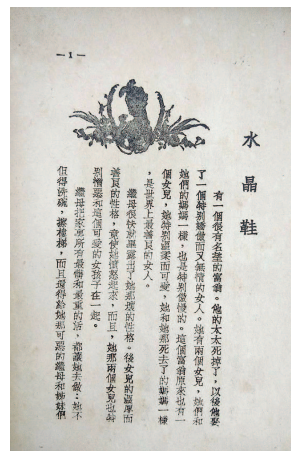 —1—
水晶鞋
有一個很有名望的富翁。他的太太死掉了，以後他娶
了一個特別驕傲而又無情的女人。她有兩個女兒，她們和
她們的媽媽一樣，也是特別傲慢的。這個富翁原來也有一
個女兒，她特別溫柔而可愛，她和她那死去了的媽媽一樣
，是世界上最善良的女人。
繼母很快就暴露出了她那壞的性格。後女兒的溫厚而
善良的性格，竟使她憎惡起來，而且，她那兩個女兒也特
別憎惡和這個可愛的女孩子在一起。
繼母把家裏所有最髒和最重的活，都讓她去做：她不
但得洗碗，擦樓梯，而且還得給她那可惡的繼母和姊妹們